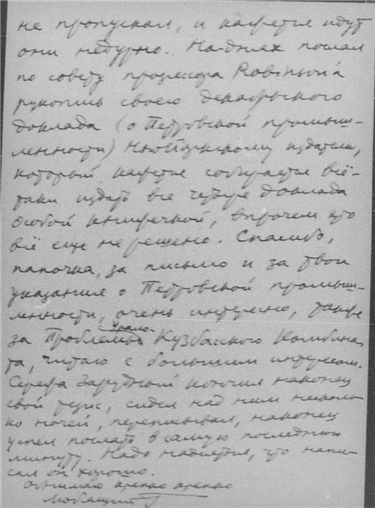 не пропускал, и кажется идут
они недурно. На-днях послал
по совету профессора Robinson'а
рукопись своего декабрьского
доклада (о Петровской промыш-
ленности) Нью Йоркскому издателю,
который кажется собирается всё-
таки издать все четыре доклада
особой книжечкой, впрочем это
всё еще не решено. Спасибо,
папочка, за письмо и за твои
указания о Петровской промыш-
ленности, очень интересно, также
за Проблемы Урало-
Кузбасского Комбина-
та, читаю с большим интересом.
Сережа Зарудный кончил наконец
свой тезис, сидел над ним несколь-
ко ночей, переписывал, наконец
успел послать в самую последнюю
минуту. Надо надеяться, что напи-
сал он хорошо.
Обнимаю крепко крепко
Любящий Г